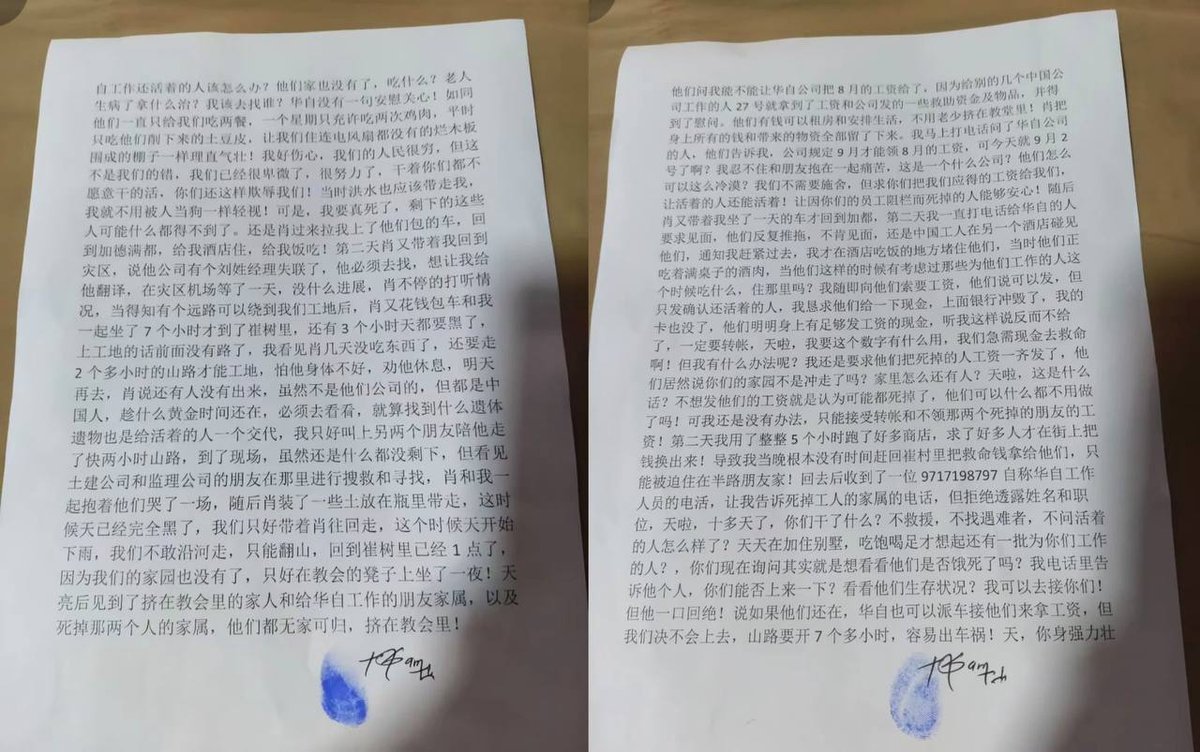 自工作还活着的人该怎么办？他们家也没有了，吃什么？老人
生病了拿什么治？我该去找谁？华自没有一句安慰关心！如同
他们一直只给我们吃两餐，一个星期只充许吃两次鸡肉，平时
只吃他们削下来的土豆皮，让我们住连电风扇都没有的烂木板
围成的棚子一样理直气壮！我好伤心，我们的人民很穷，但这
不是我们的错，我们已经很卑微了，很努力了，干着你们都不
愿意干的活，你们还这样欺辱我们！当时洪水也应该带走我，
我就不用被人当狗一样轻视！可是，我要真死了，剩下的这些
人可能什么都得不到了。还是肖过来拉我上了他们包的车，回
到加德满都，给我酒店住，给我饭吃！第二天肖又带着我回到
灾区，说他公司有个刘姓经理失联了，他必须去找，想让我给
他翻译，在灾区机场等了一天，没什么进展，肖不停的打听情
况，当得知有个远路可以绕到我们工地后，肖又花钱包车和我
一起坐了 7 个小时才到了崔树里，还有 3 个小时天都要黑了，
上工地的话前面没有路了，我看见肖几天没吃东西了，还要走
2 个多小时的山路才能工地，怕他身体不好，劝他休息，明天
再去，肖说还有人没有出来，虽然不是他们公司的，但都是中
国人，趁什么黄金时间还在，必须去看看，就算找到什么遗体
遗物也是给活着的人一个交代，我只好叫上另两个朋友陪他走
了快两小时山路，到了现场，虽然还是什么都没剩下，但看见
土建公司和监理公司的朋友在那里进行搜救和寻找，肖和我一
起抱着他们哭了一场，随后肖装了一些土放在瓶里带走，这时
候天已经完全黑了，我们只好带着肖往回走，这个时候天开始
下雨，我们不敢沿河走，只能翻山，回到崔树里已经 1 点了，
因为我们的家园也没有了，只好在教会的凳子上坐了一夜！天
亮后见到了挤在教会里的家人和给华自工作的朋友家属，以及
死掉那两个人的家属，他们都无家可归，挤在教会里！
他们问我能不能让华自公司把 8 月的工资给了，因为给别的几个中国公
司工作的人 27 号就拿到了工资和公司发的一些救助资金及物品，并得
到了慰问。他们有钱可以租房和安排生活，不用老少挤在教堂里！肖把
身上所有的钱和带来的物资全部留了下来。我马上打电话问了华自公司
的人，他们告诉我，公司规定 9 月才能领 8 月的工资，可今天就 9 月 2
号了啊？我忍不住和朋友抱在一起痛苦，这是一个什么公司？他们怎么
可以这么冷漠？我们不需要施舍，但求你们把我们应得的工资给我们，
让活着的人还能活着！让因你们的员工阻栏而死掉的人能够安心！随后
肖又带着我坐了一天的车才回到加都，第二天我一直打电话给华自的人
要求见面，他们反复推拖，不肯见面，还是中国工人在另一个酒店碰见
他们，通知我赶紧过去，我才在酒店吃饭的地方堵住他们，当时他们正
吃着满桌子的酒肉，当他们这样的时候有考虑过那些为他们工作的人这
个时候吃什么，住那里吗？我随即向他们索要工资，他们说可以发，但
只发确认还活着的人，我恳求他们给一下现金，上面银行冲毁了，我的
卡也没了，他们明明身上有足够发工资的现金，听我这样说反而不给
了，一定要转帐，天啦，我要这个数字有什么用，我们急需现金去救命
啊！但我有什么办法呢？我还是要求他们把死掉的人工资一齐发了，他
们居然说你们的家园不是冲走了吗？家里怎么还有人？天啦，这是什么
话？不想发他们的工资就是认为可能都死掉了，他们可以什么都不用做
了吗！可我还是没有办法，只能接受转帐和不领那两个死掉的朋友的工
资！第二天我用了整整 5 个小时跑了好多商店，求了好多人才在街上把
钱换出来！导致我当晚根本没有时间赶回崔村里把救命钱拿给他们，只
能被迫住在半路朋友家！回去后收到了一位 9717198797 自称华自工作
人员的电话，让我告诉死掉工人的家属的电话，但拒绝透露姓名和职
位，天啦，十多天了，你们干了什么？不救援，不找遇难者，不问活着
的人怎么样了？天天在加住别墅，吃饱喝足才想起还有一批为你们工作
的人？，你们现在询问其实就是想看看他们是否饿死了吗？我电话里告
诉他个人，你们能否上来一下？看看他们生存状况？我可以去接你们！
但他一口回绝！说如果他们还在，华自也可以派车接他们来拿工资，但
我们决不会上去，山路要开 7 个多小时，容易出车祸！天，你身强力壮